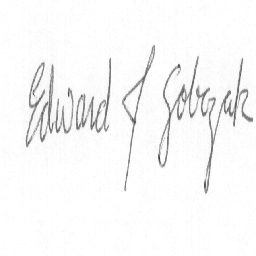 Edward J Gobrzak